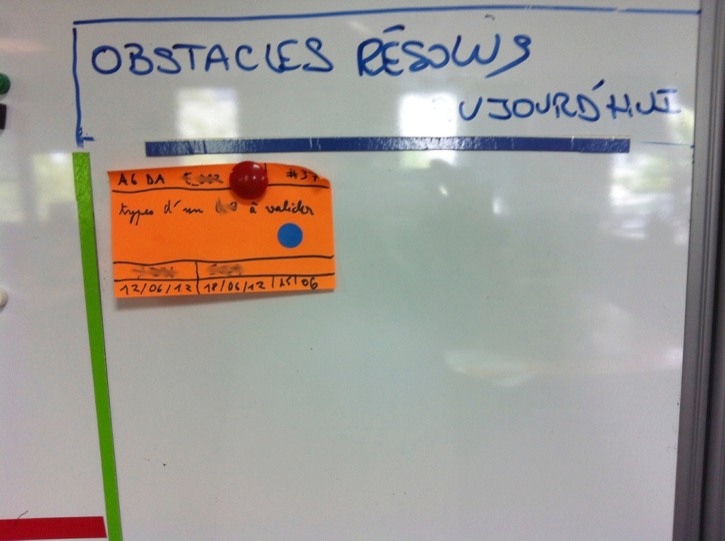 OBSTACLES RÉSOLUS
UJOURD'HUI
AG DA #37
types d'un à valider
12/06/12 18/06/12 25/06